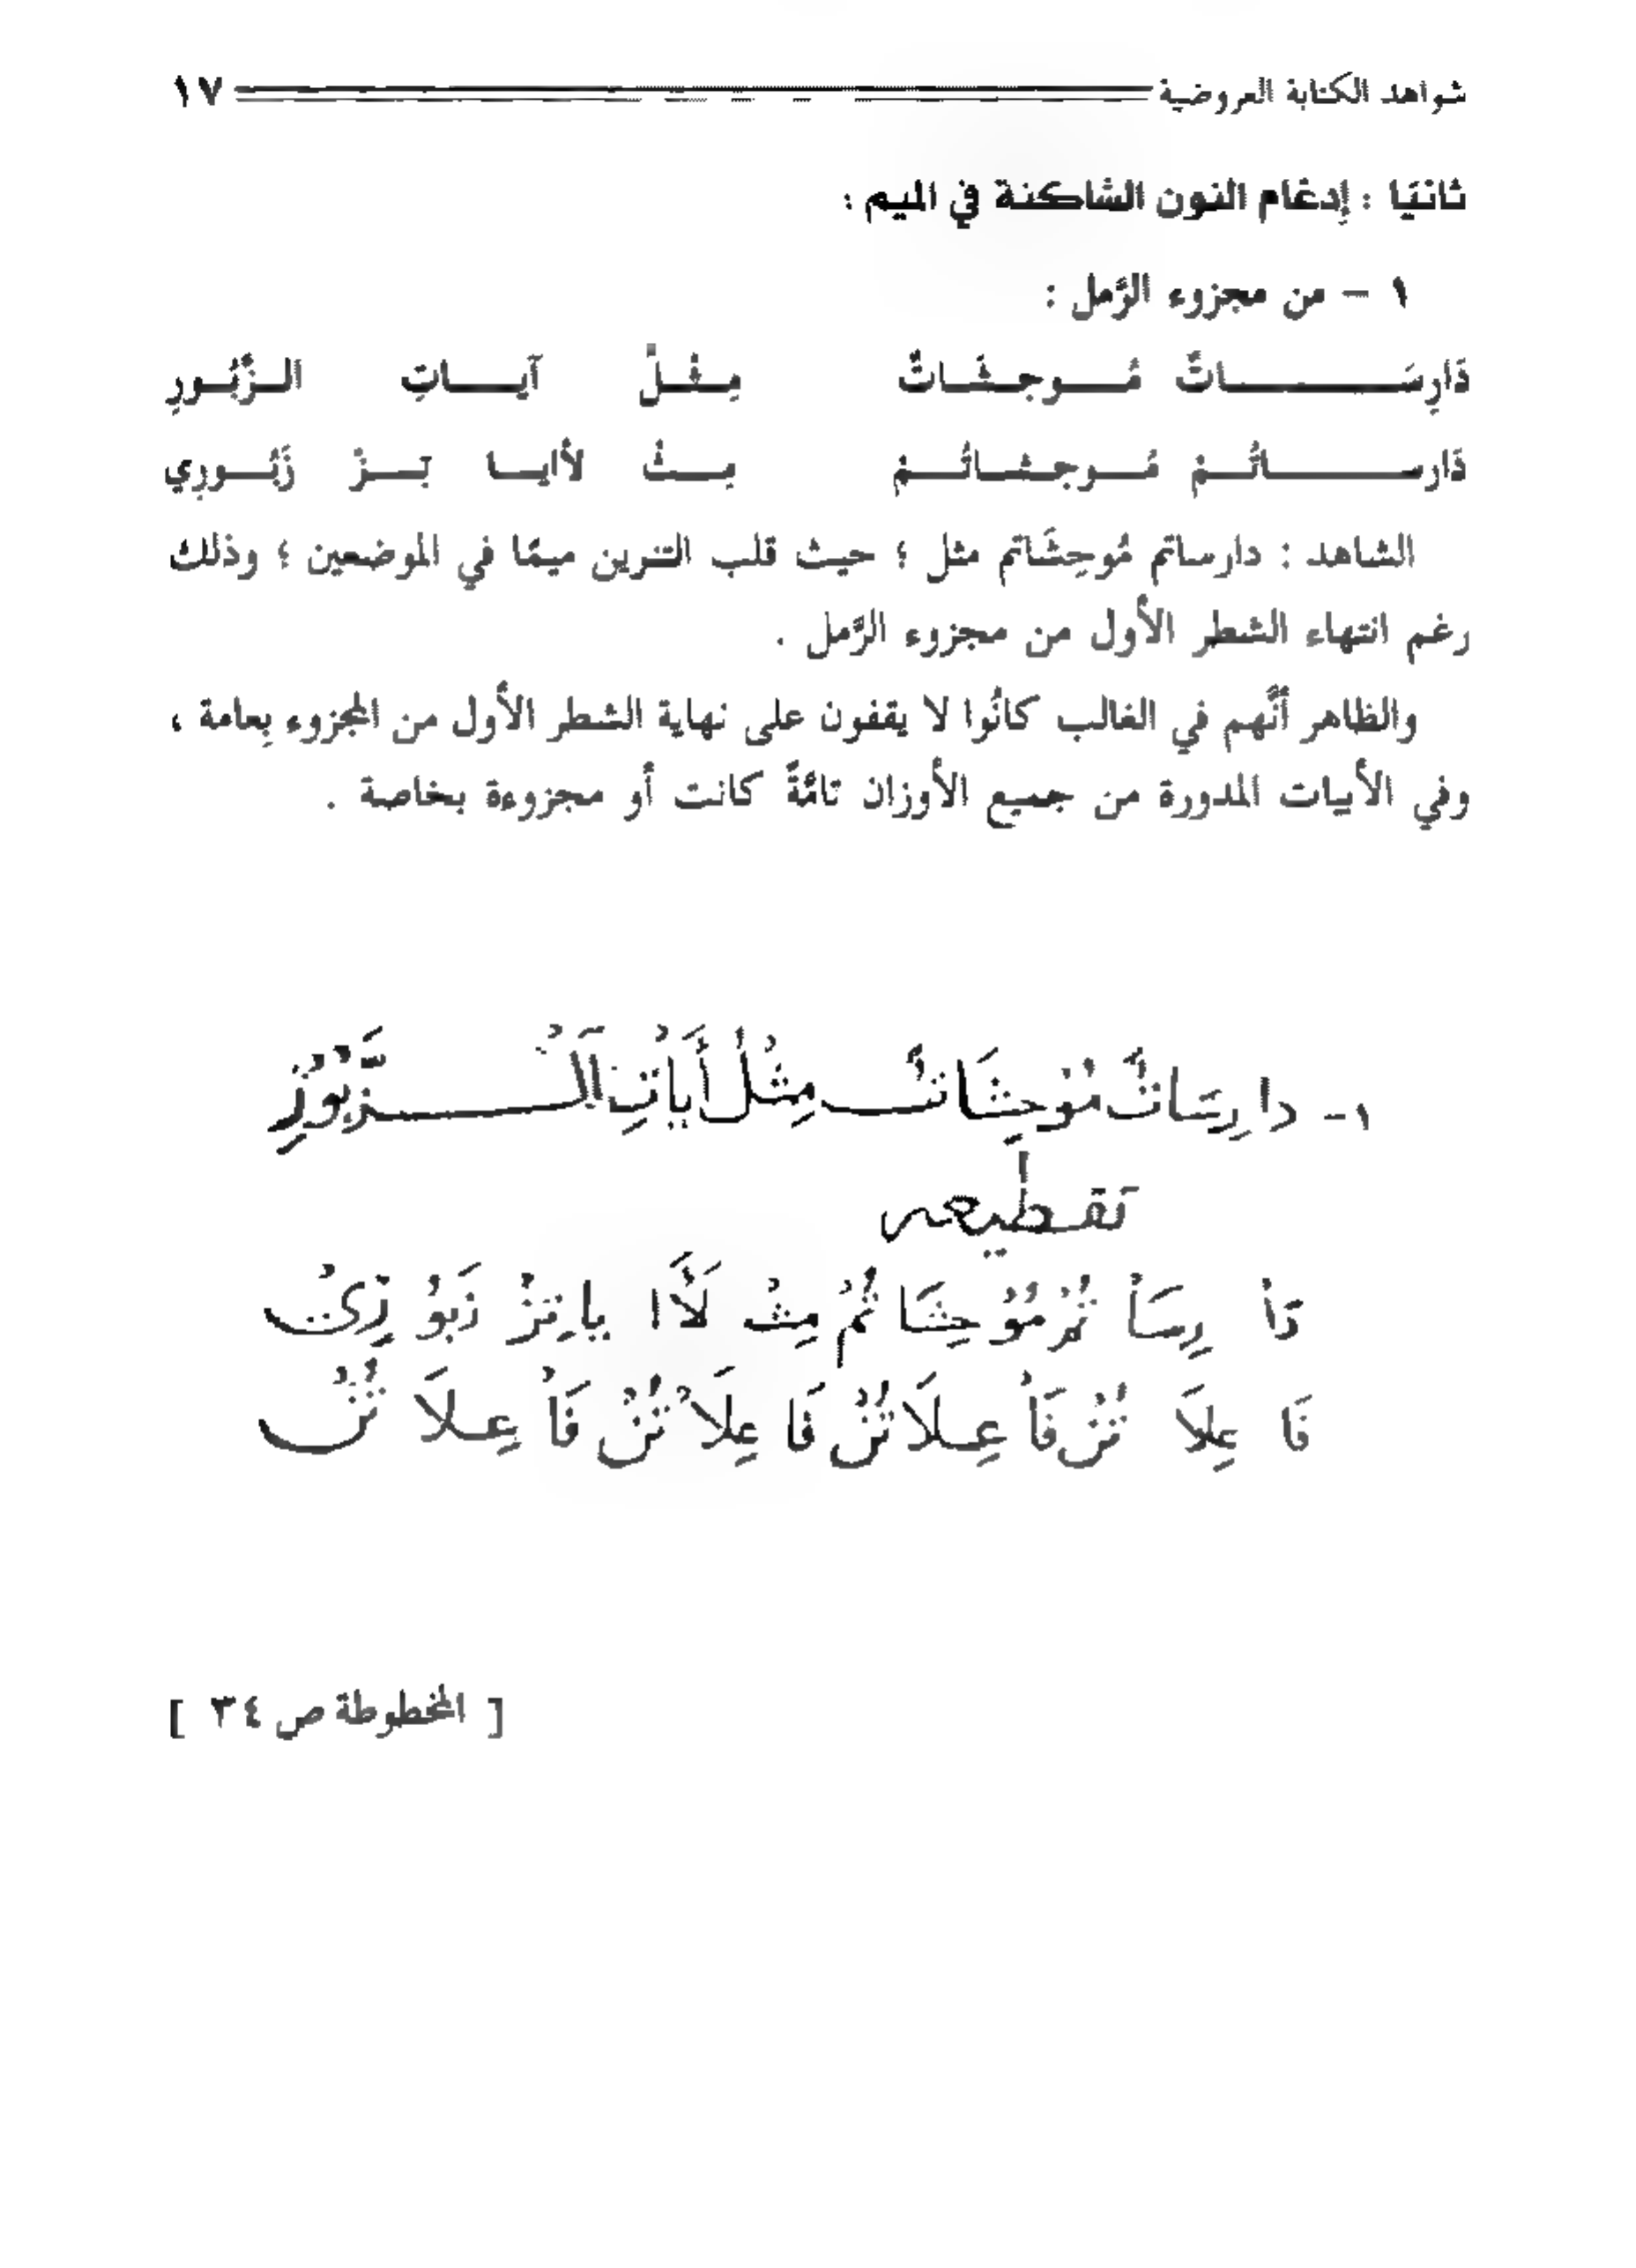 شواهد الكتابة العروضية ١٧
ثانيًا : إدغام النون الساكنة في الميم :
١ – من مجزوء الرَّمل :
دَارِسَـاتٌ مُـوحِشَاتٌ مِـثْـلُ آيَـاتِ الـزَّبُـورِ
دَارسـاتُـمْ مُـوحِشاتُـمْ مِـثْ لأايـا تِـزْ زَبُـورِي
الشاهد : دارساتم مُوحِشَاتم مثل ؛ حيث قلب التنوين ميمًا في الموضعين ؛ وذلك
رغم انتهاء الشطر الأول من مجزوء الرَّمل .
والظاهر أنَّهم في الغالب كانُوا لا يقفون على نهاية الشطر الأول من المجزوء بِعامة ،
وفي الأبيات المدورة من جميع الأوزان تامَّةً كانت أو مجزوءة بخاصة .
١- دارِسَاتٌ مُوْحِشَاتٌ مِثْلُ أَيَاْتِ اَلْـزَّبُوْرِ
تقطيعه
دَاْ رِسَاْ تُمْ مُوْ حِشَا تُمْ مِثْ لَأَا يا تِزْ زَبُوْ رِيْ
فَا عِلَا تُنْ فَاْ عِلَا تُنْ فَا عِلَاْ تُنْ فَاْ عِلَا تُنْ
[ المخطوطة ص ٣٤ ]